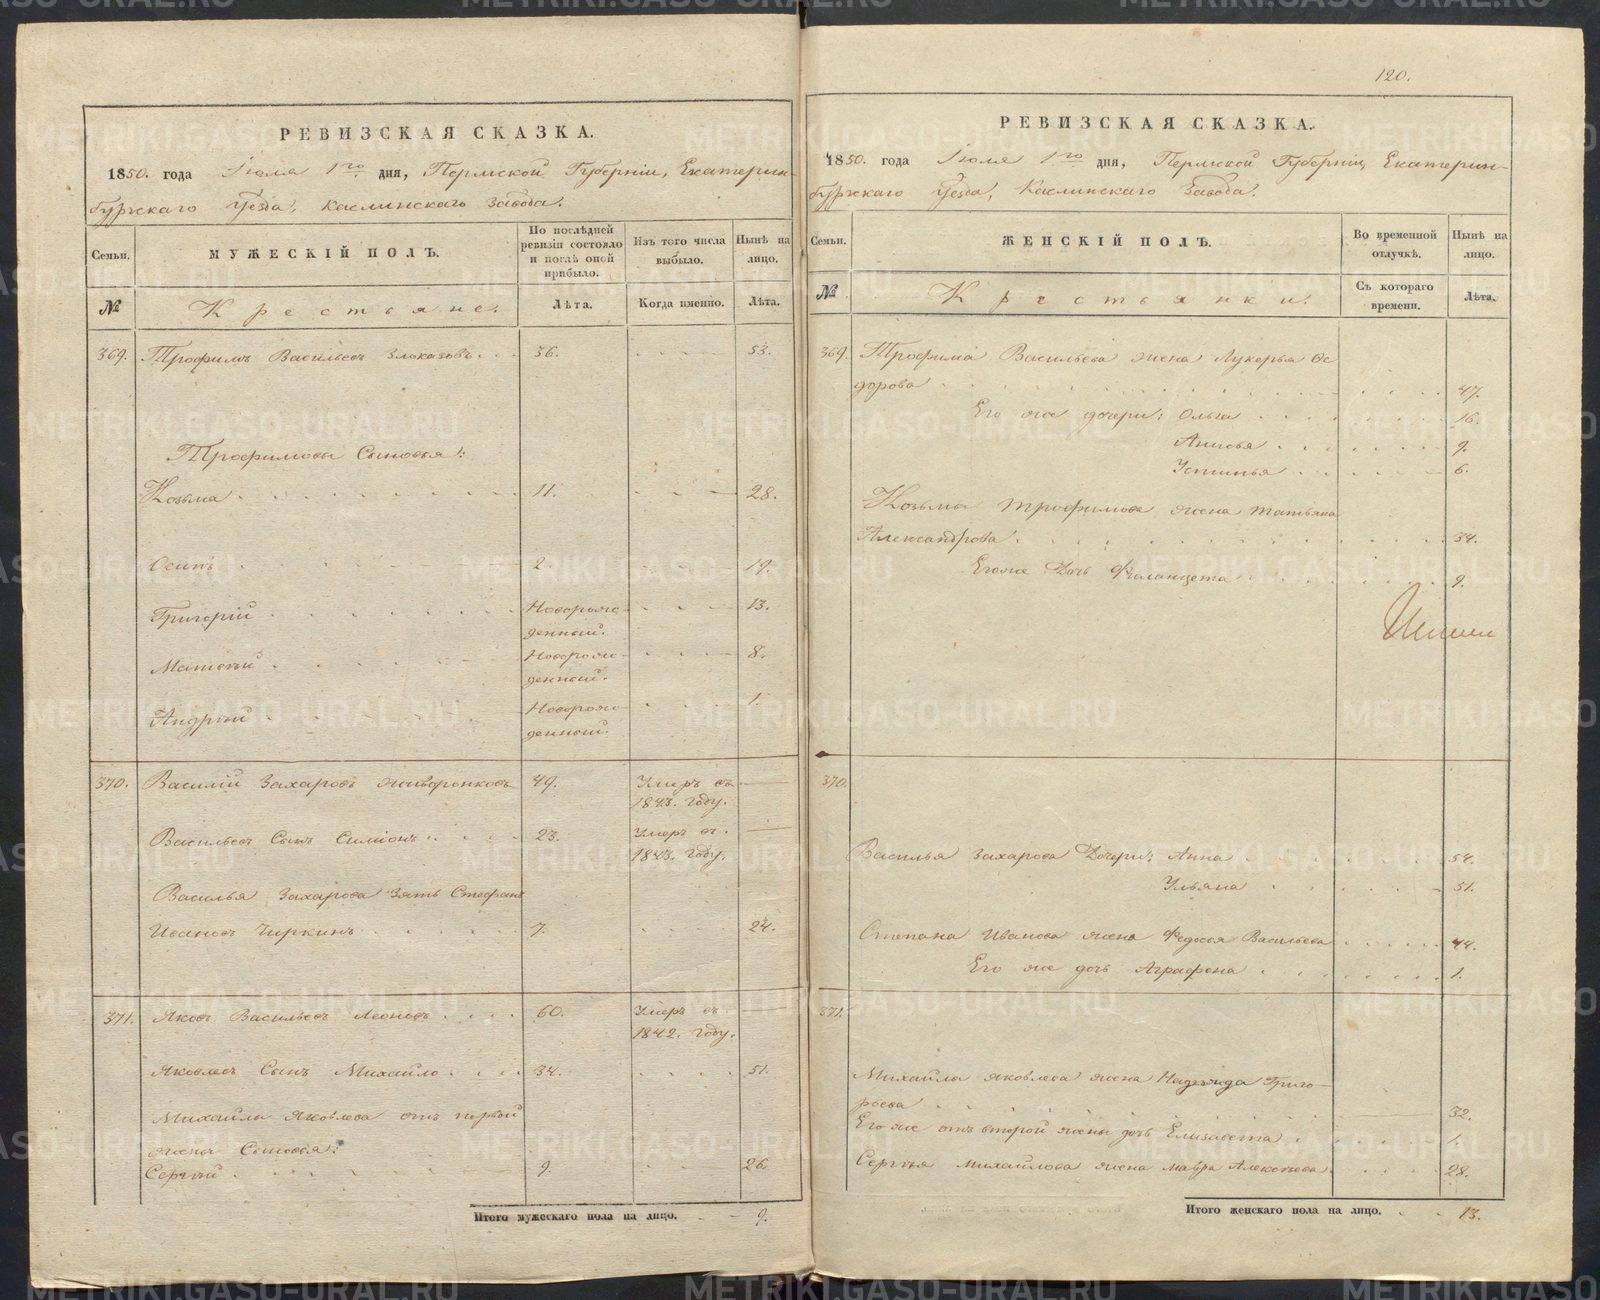 120.
РЕВИЗСКАЯ СКАЗКА.
1850. года Іюля 1го дня, Пермской Губерніи, Екатерин-
бургскаго Уѣзда, Каслинскаго Завода.
Семьи.
МУЖЕСКІЙ ПОЛЪ.
По послѣдней ревизіи состояло и послѣ оной прибыло.
Изъ того числа выбыло.
Нынѣ на лицо.
№
Крестьяне.
Лѣта.
Когда именно.
Лѣта.
369. Трофимъ Васильевъ Злоказовъ. 36. 53.
Трофимовы Сыновья:
Козьма 11. 28.
Осипъ 2. 19.
Григорій Новорож-
денный. 13.
Матвѣй Новорож-
денный. 8.
Андрѣй Новорож-
денный. 1.
370. Василій Захаровъ Жаворонковъ 49. Умеръ въ
1843. году.
Васильевъ Сынъ Симіонъ 23. Умеръ въ
1843. году.
Василья Захарова Зять Стефанъ
Ивановъ Чиркинъ 7. 24.
371. Яковъ Васильевъ Леоновъ 60. Умеръ въ
1842. году.
Яковлевъ Сынъ Михайло 34. 51.
Михайли Яковлева отъ первой
жены Сыновья:
Сергѣй 9. 26.
Итого мужескаго пола на лицо. 9.
РЕВИЗСКАЯ СКАЗКА.
1850. года Іюля 1го дня, Пермской Губерніи, Екатерин-
бургскаго Уѣзда, Каслинскаго Завода.
Семьи.
ЖЕНСКІЙ ПОЛЪ.
Во временной отлучкѣ.
Нынѣ на лицо.
№
Крестьянки.
Съ котораго времени.
Лѣта.
369. Трофима Васильева жена Лукерья Ѳе
дорова 47.
Его же дочери: Ольга 16.
Анисья 9.
Устинья 6.
Козьмы Трофимова жена Татьяна
Александрова 34.
Егоже Дочь 9.
370.
Василья Захарова Дочери: Анна 54.
Ульяна 51.
Степана Иванова жена Федосья Васильева 44.
Его же дочь Аграфена 1.
371.
Михайла Яковлева жена Надежда Григо-
рьева 32.
Его же отъ второй жены дочь Елизавета 1.
Сергѣя Михайлова жена Мавра Алексѣева 28.
Итого женскаго пола на лицо. 13.
METRIKI.GASO-URAL.RU